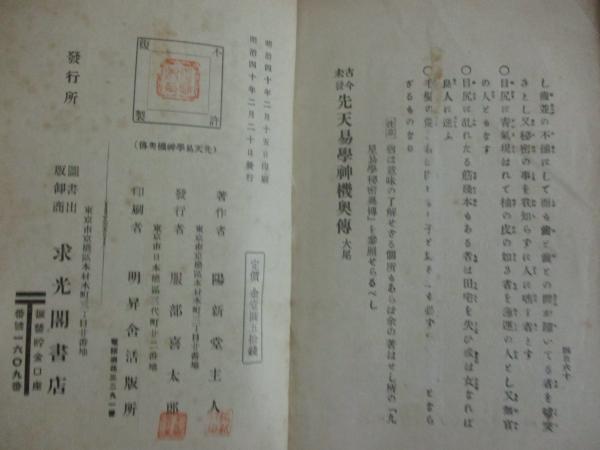 四百六十
し齒並の不揃にして而も齒と齒との間が隙いてる者を嘘突
きとし又秘密の事を我知らずに人に喋る者とす
〇目尻に青氣現はれて柚の皮の如き者を漁運の人とし又無官
の人ともなす
〇目尻に乱れたる筋幾本もある者は田宅を失ひ或は女なれば
良人に逆ふ
ざるものなり
尚ほ意味の了解せざる個所もあらば余の著はせし所の『九
星易學秘密奧傳』を參照せらるべし
古今未發 先天易學神機奧傳 大尾
定價金壹圓五拾錢
明治四十年二月十五日印刷
明治四十年二月二十日發行
不許複製
(先天易學神機奧傳)
著作者 陽新堂主人
東京市京橋區本材木町三丁目廿番地
發行者 服部喜太郎
東京市日本橋區三代町廿二番地
印刷者 明昇舍活版所
發行所
圖書出版御商
東京市京橋區本材木町三丁目廿番地
求光閣書店
振替貯金口座
番號一六〇九番